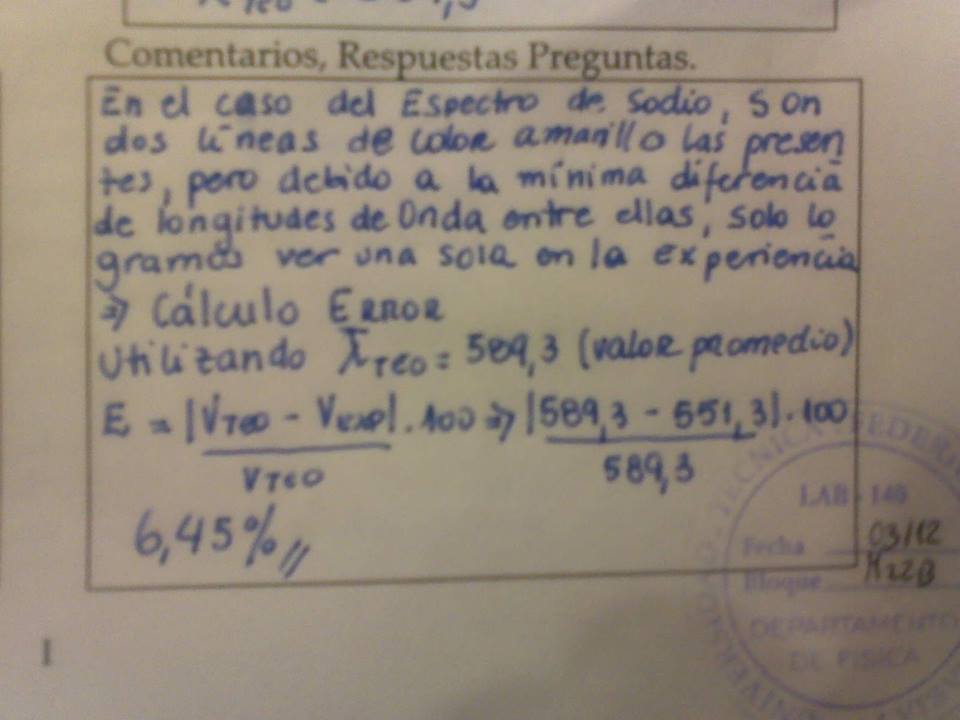 λ TEO = 589,3
Comentarios, Respuestas Preguntas.
En el caso del Espectro de Sodio, son
dos líneas de color amarillo las presen
tes, pero debido a la mínima diferencia
de longitudes de Onda entre ellas, solo lo
gramos ver una sola en la experiencia
⇒ Cálculo ERROR
Utilizando λ̄TEO = 589,3 (valor promedio)
E = |VTEO - VEXP| . 100 ⇒ |589,3 - 551,3| . 100
VTEO 589,3
6,45% //
TÉCNICA FEDERI
LAB - 140
Fecha 03/12
Bloque M22B
DEPARTAMENTO
DE FISICA
UNIVER
I